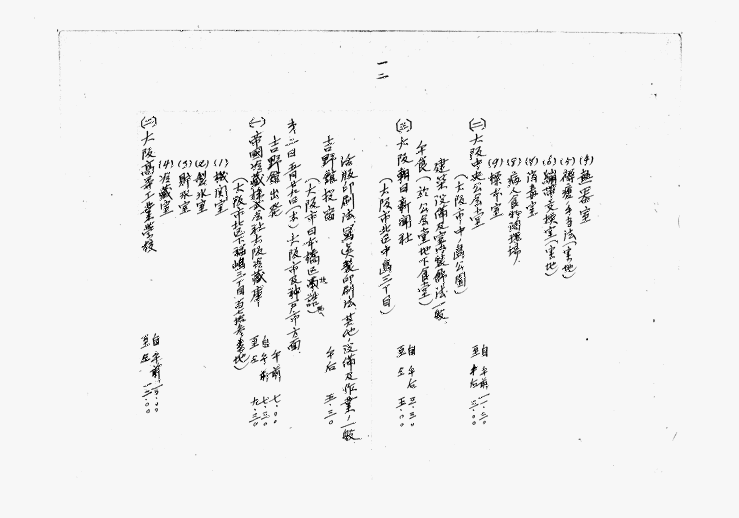 一二
(4) 無菌室
(5) 褥瘡手当法(実地)
(6) 繃帯交換室(実地)
(7) 消毒室
(8) 病人食物調理場
(9) 標本室
(二) 大阪中央公会堂 自午前一一・三〇 至午后三・〇〇
(大阪市中ノ島公園)
建築、設備及室内装飾法ノ一般
午食(於公会堂地下食堂)
(三) 大阪朝日新聞社 自午后三・三〇 至〃五・〇〇
(大阪市北区中ノ島三丁目)
活版印刷法、写真製印刷法、其他ノ設備及作業ノ一般
吉野館投宿 午后五・三〇
(大阪市日本橋区
第二日五月廿九日(木)大阪市及神戸市方面
吉野館出発 午前七・〇〇
(一) 帝国冷蔵株式会社大阪冷蔵庫 自午前七・三〇 至〃九・三〇
(大阪市北区下福島三丁目
(1) 機関室
(2) 製氷室
(3) 貯氷室
(4) 冷蔵室
(二) 大阪高等工業学校 自午前一〇・〇〇 至〃一二・〇〇